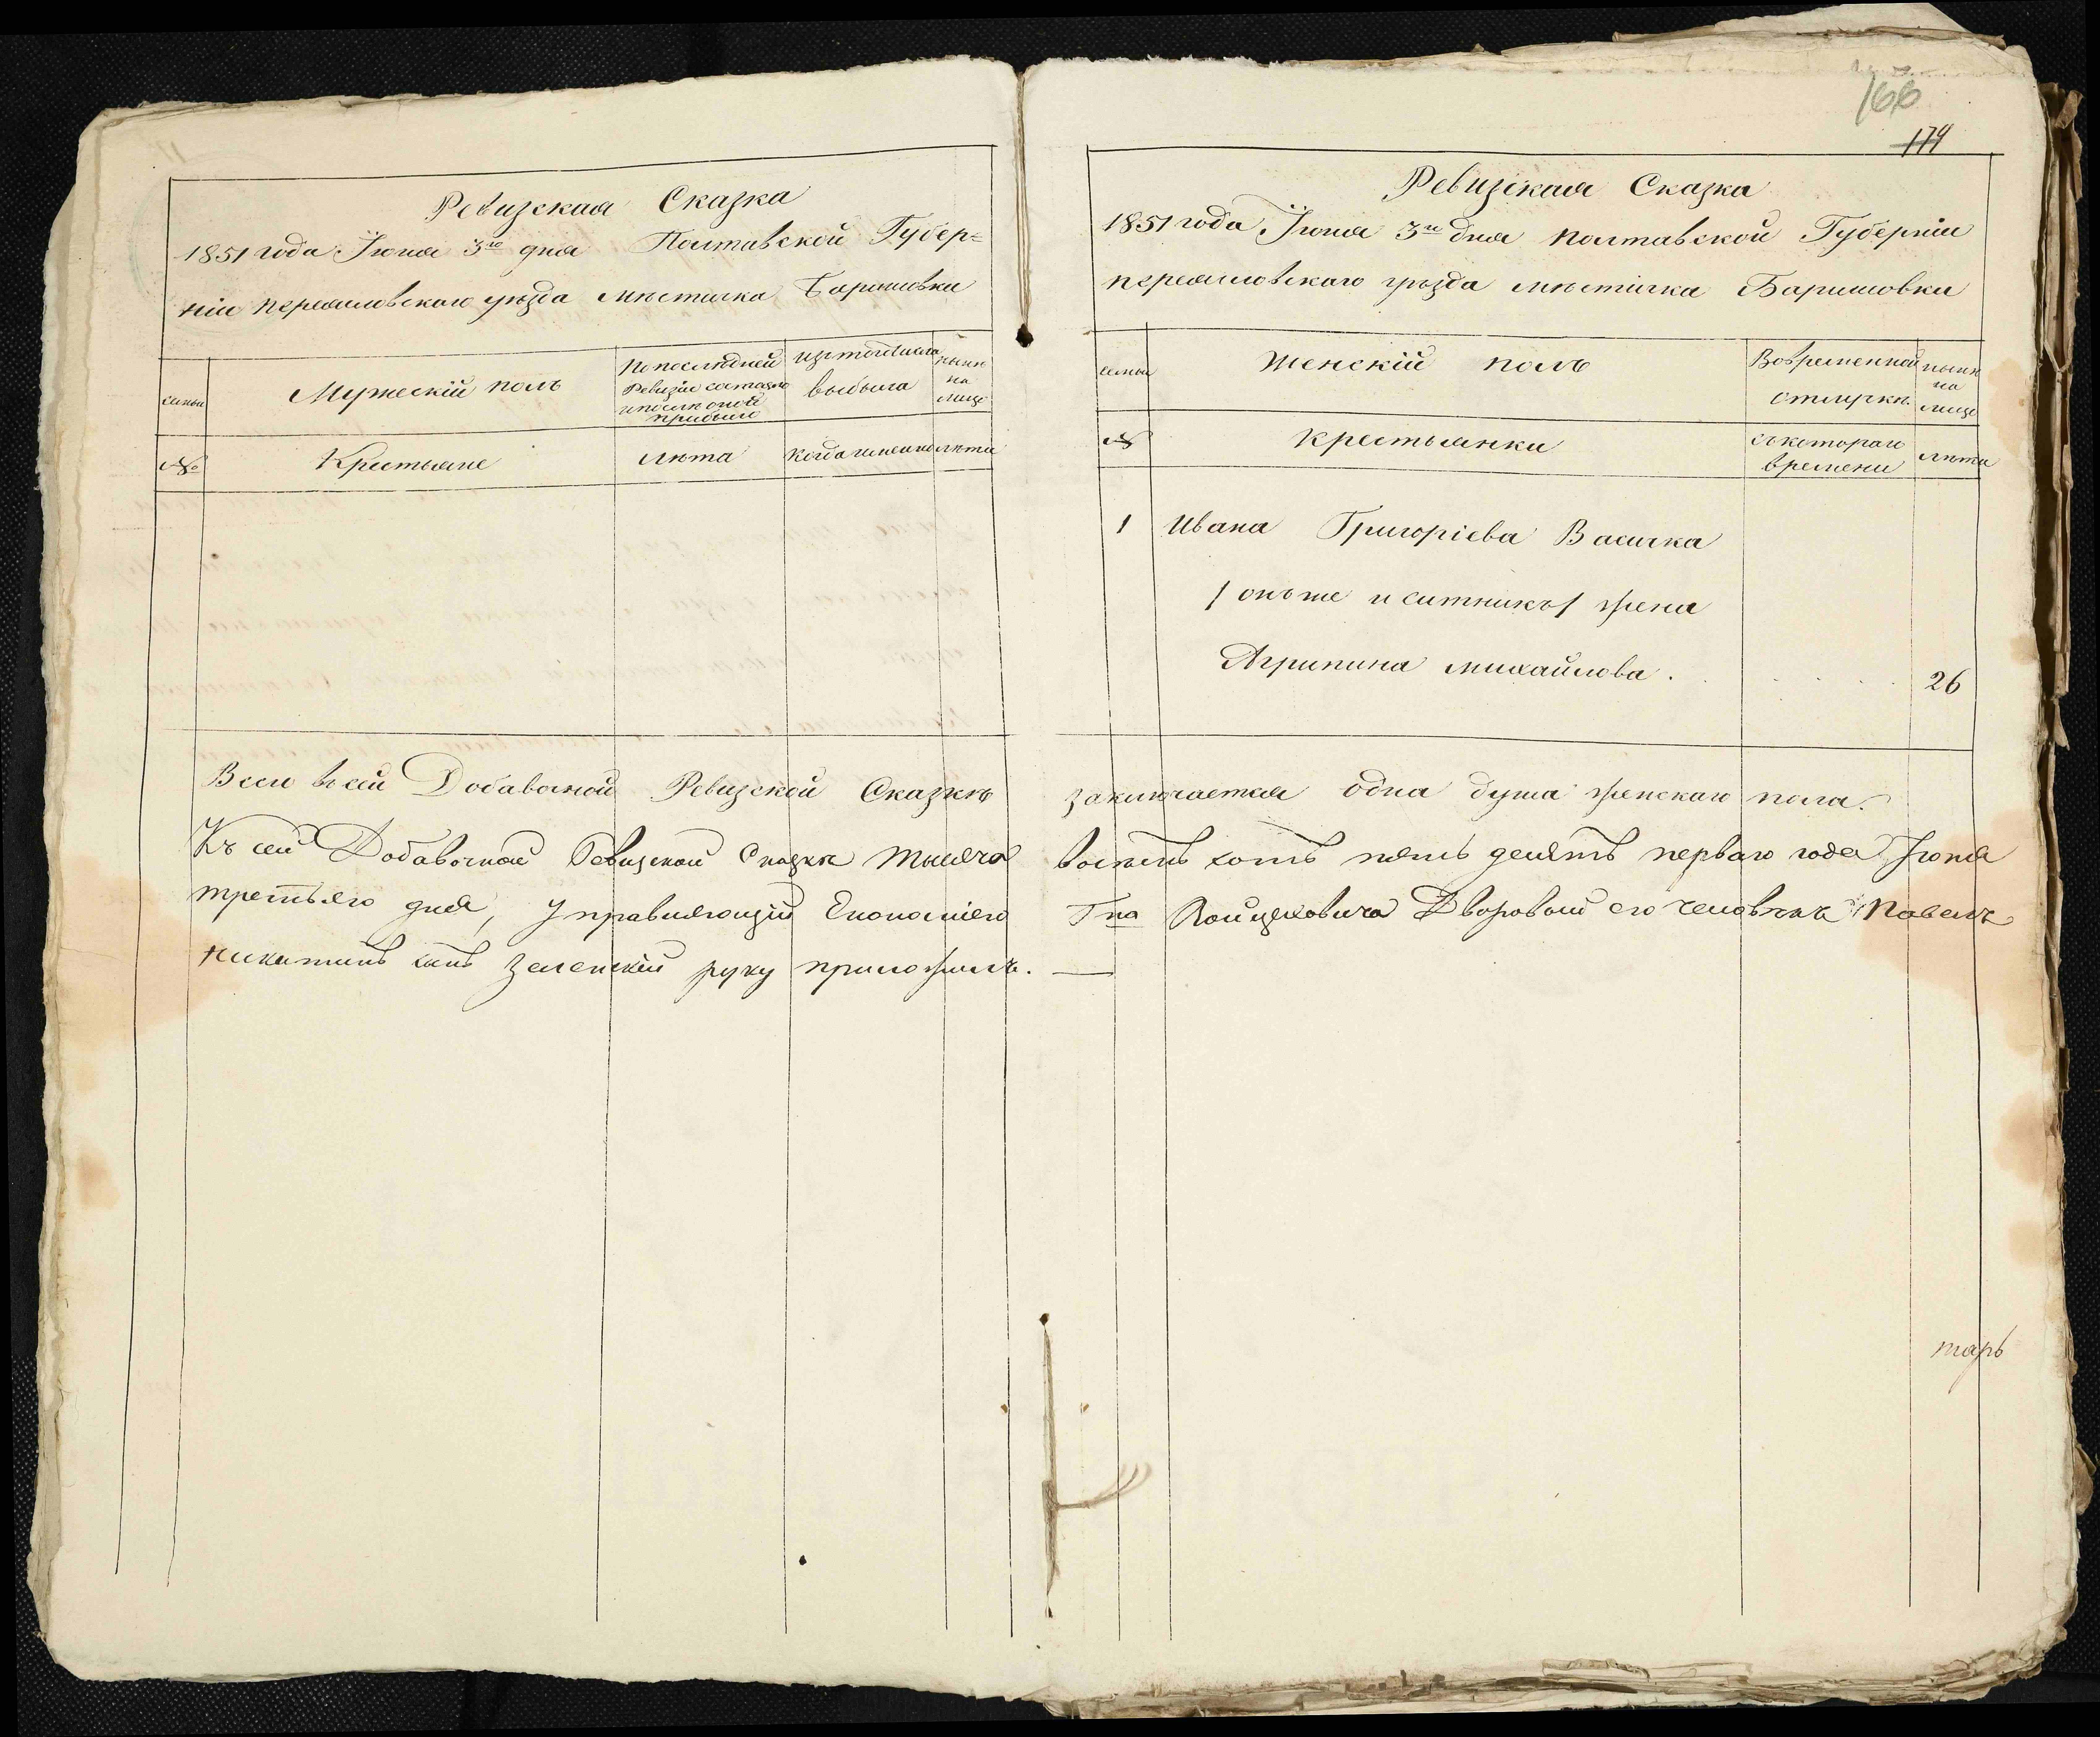 166
174
Ревизская Сказка
1851 года Іюня 3го дня Полтавской Губер=
ніи переяславскаго уѣзда мѣстичка Баришовки
семьи
Мужескій полъ
По последней
Ревизіи состояло
и после оной
прибыло
изтогочисла
выбыло
нынѣ
на
лицо
№
Крестьяне
лѣта
когдаименно
лѣта
Ревизская Сказка
1851 года Іюня 3го дня полтавской Губерніи
переясловскаго уѣзда мѣстичка Баришовки
семьи
Женскій полъ
Вовременной
отлучкѣ
нынѣ
на
лицо
№
крестьянки
съкотораго
времени
лѣта
1 Ивана Григоріева Васичка
/ онъже и ситникъ / жена
Агрипина михайлова . 26
Всего въсей Добавочной Ревизской Сказкѣ заключается одна душа женскаго пола.
Къ сей Добавочной Ревизской Сказкѣ тысяча восемь сотъ пять десятъ перваго года Іюня
третьяго дня, Управляющій Економіею Гна Войцеховича Дворовой его человѣкъ Павелъ
никитинъ сынъ Зеленскій руку приложилъ. —
тарь